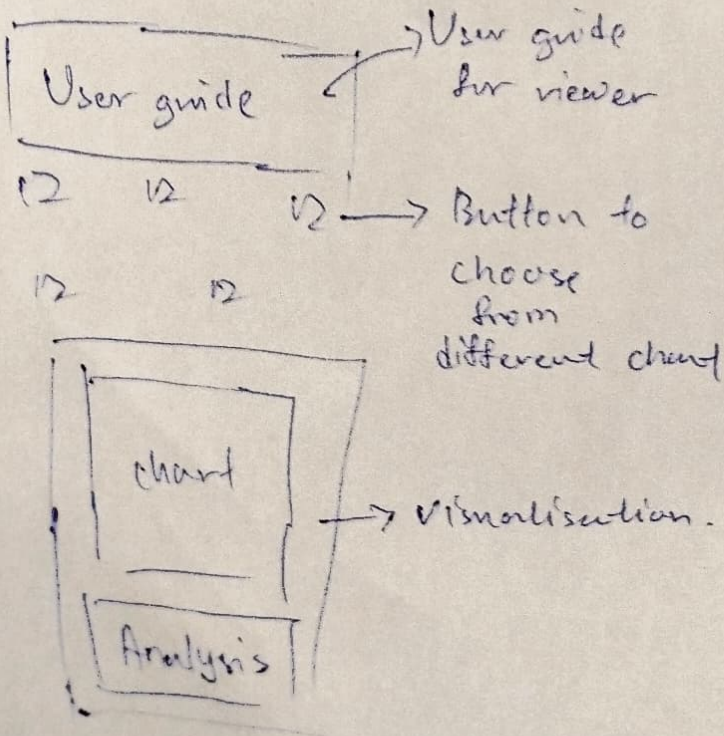 User guide
User guide
for viewer
Button to
choose
from
different chart
chart
Visualisation.
Analysis